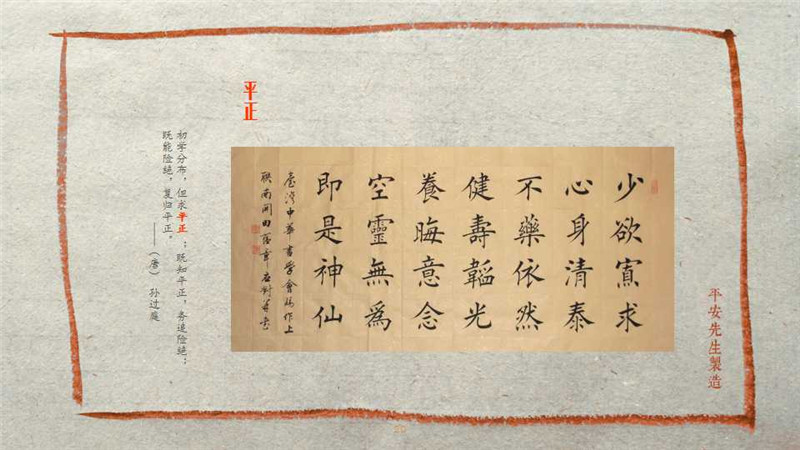 平正
初学分布，但求平正；既知平正，务追险绝；
既能险绝，复归平正。
——（唐） 孙过庭
少欲寡求
心身清泰
不藥依然
健壽韜光
養晦意念
空靈無為
即是神仙
臺灣中華書学會
平安先生製造